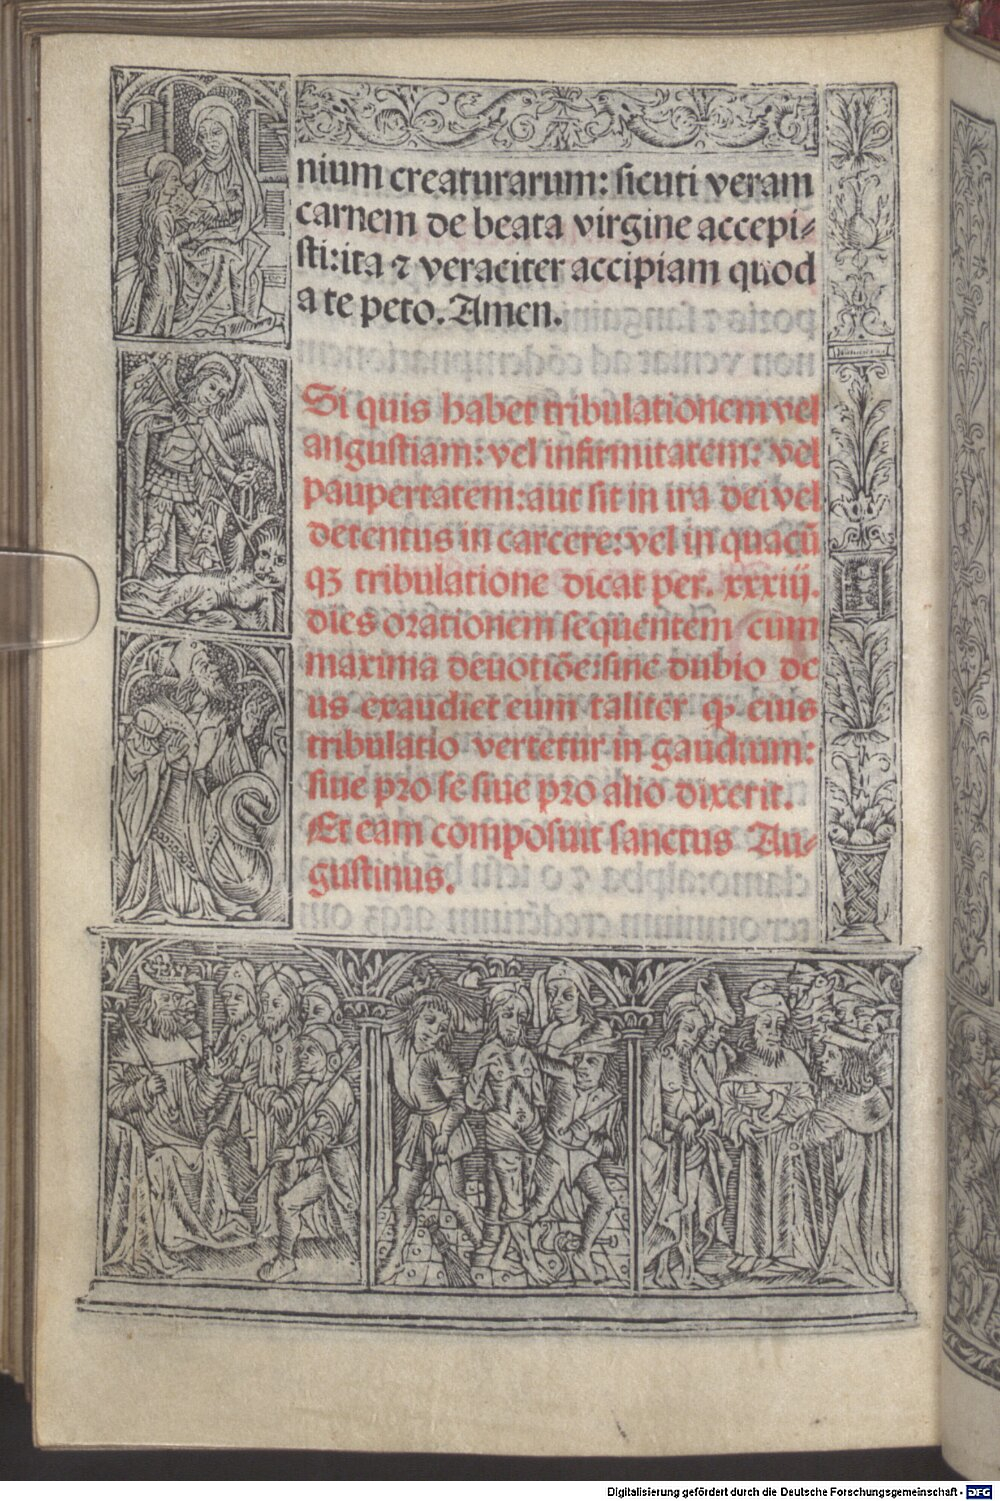 nium creaturarum: sicuti veram
carnem de beata virgine accepi-
sti: ita ⁊ veraciter accipiam quod
a te peto. Amen.
Si quis habet tribulationem vel
angustiam: vel infirmitatem: vel
paupertatem: aut sit in ira dei vel
detentus in carcere: vel in quacū
qꝫ tribulatione dicat per. xxxiij.
dies orationem sequentem cum
maxima deuotiōe: sine dubio de
us exaudiet eum taliter ꝙ eius
tribulatio vertetur in gaudium:
siue pro se siue pro alio dixerit.
Et eam composuit sanctus Au-
gustinus.
Digitalisierung gefördert durch die Deutsche Forschungsgemeinschaft - DFG